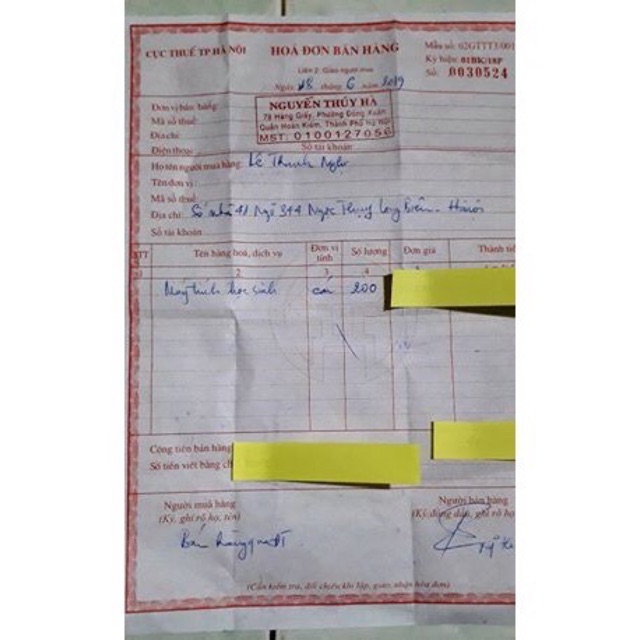 CỤC THUẾ TP HÀ NỘI
HOÁ ĐƠN BÁN HÀNG
Mẫu số: 02GTTT3/001
Ký hiệu: 01BK/18P
Liên 2: Giao người mua
Số: 0030524
Ngày 18 tháng 6 năm 2019
Đơn vị bán hàng:
NGUYỄN THÚY HÀ
Mã số thuế:
79 Hàng Giấy, Phường Đồng Xuân
Địa chỉ:
Quận Hoàn Kiếm, Thành Phố Hà Nội
MST: 0100127056
Điện thoại:
Số tài khoản
Họ tên người mua hàng: Lê Thanh
Tên đơn vị:
Mã số thuế:
Địa chỉ: Số nhà 41 Ngõ 344 Ngọc Thụy Long Biên - Hà Nội
Số tài khoản
STT
Tên hàng hoá, dịch vụ
Đơn vị tính
Số lượng
Đơn giá
Thành tiề
1
2
3
4
Máy tính học sinh
cái
200
Cộng tiền bán hàng
Số tiền viết bằng ch
Người mua hàng
Người bán hàng
(Ký, ghi rõ họ, tên)
(Ký, đóng dấu, ghi rõ họ
Bán hàng qua ĐT
(Cần kiểm tra, đối chiếu khi lập, giao, nhận hóa đơn)